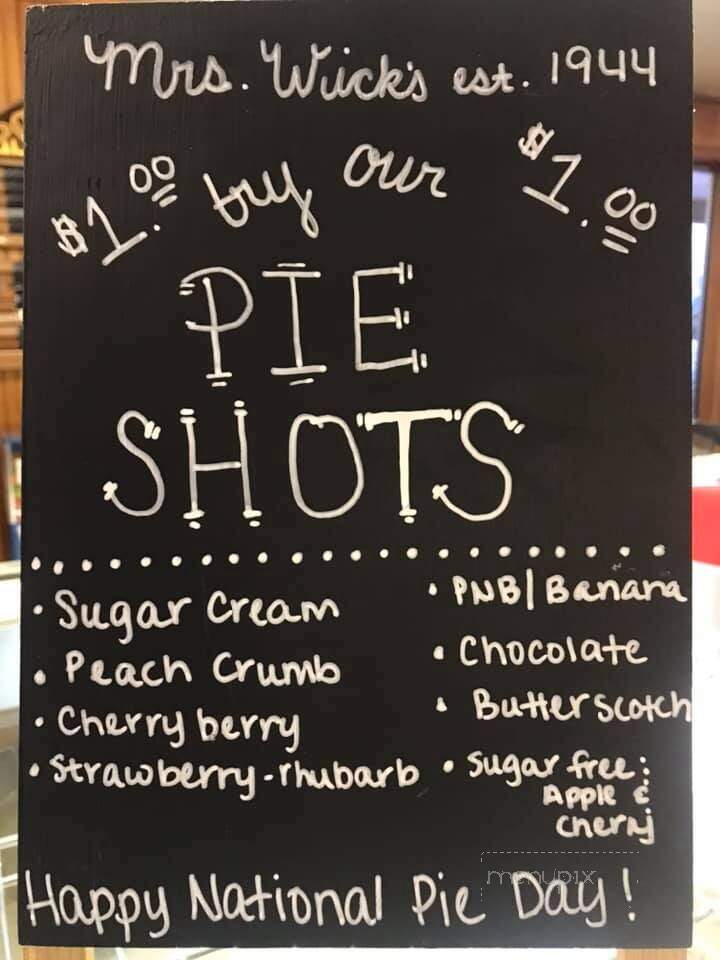 Mrs. Wick's est. 1944
$1.00 try our $1.00
PIE
SHOTS
• Sugar Cream
• Peach Crumb
• Cherry berry
• Strawberry-rhubarb
• PNB/Banana
• Chocolate
• Butterscotch
• Sugar free:
Apple &
Cherry
menupix
Happy National Pie Day!